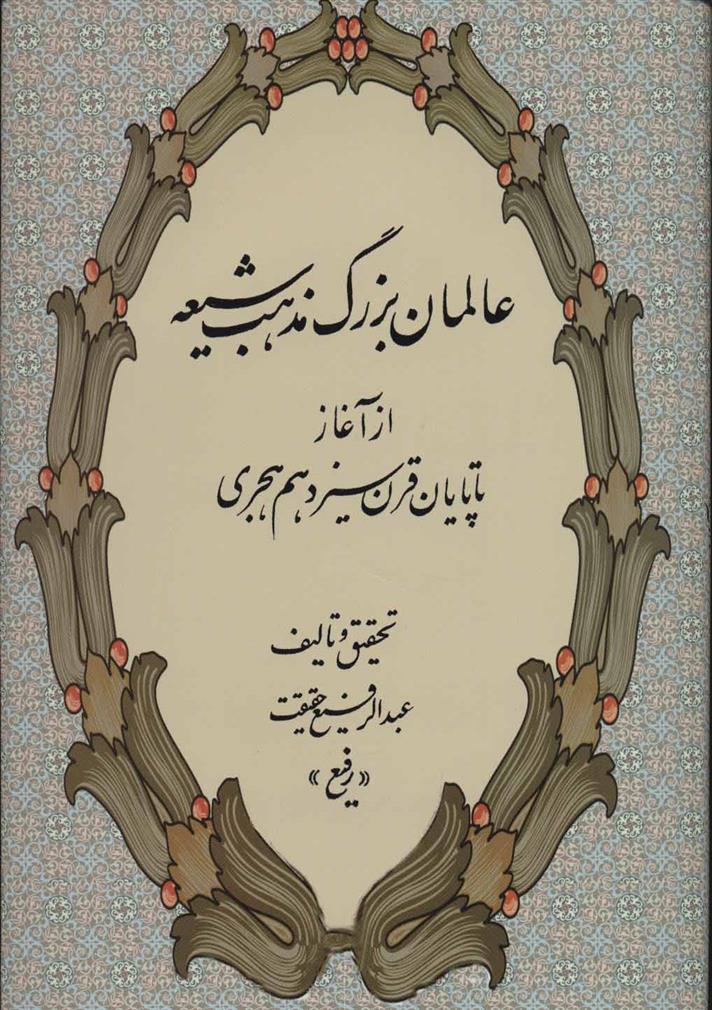 عالمان بزرگ مذهب شیعه
از آغاز
تا پایان قرن سیزدهم هجری
تحقیق و تالیف
عبدالرفیع حقیقت
«رفیع»